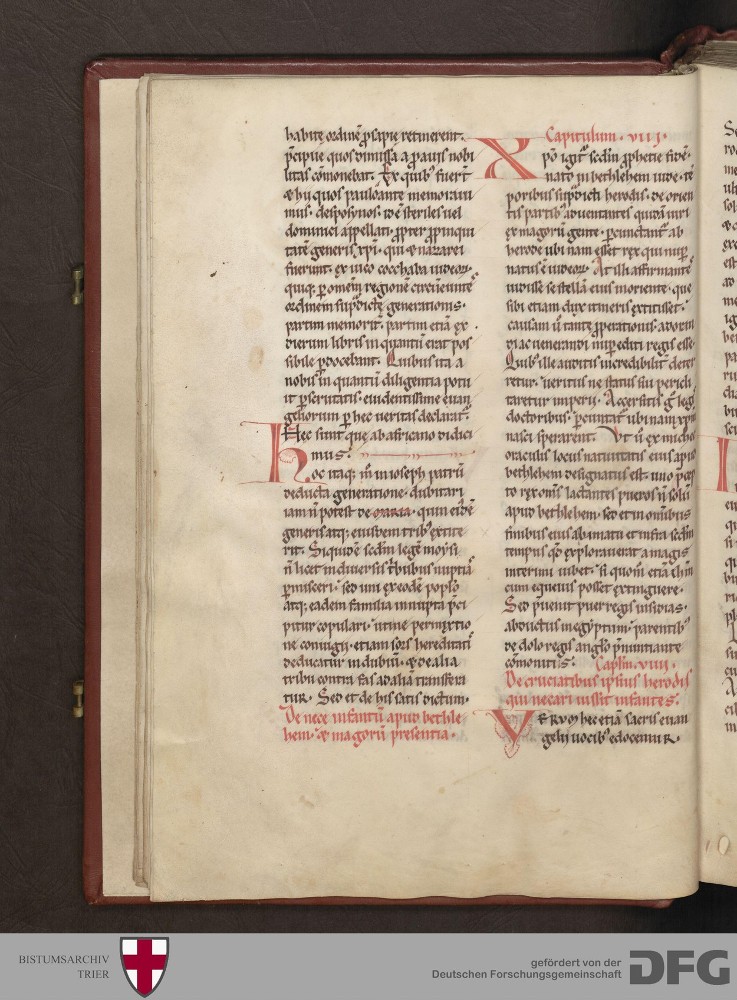 habite ordinē ꝓsapie retinerent.
p̄cipue quos dimissa a ꝓauis nobi
litas cōmonebat. Ex quibꝰ fuer̄t
& hi quos paulo ante memoraui
mus. desposynos. idē steriles uel
dominici appellati. ꝓpter ꝓpinqui
tatē generis xp̄i. qui & nazarei
fuerunt. ex uico cocchaba iudeoꝝ.
quiq; ꝑ omnē regionē circūeunte
ordinem sup̄dictę generationis.
partim memorit̄. partim etiā ex
dierum libris in quantū erat pos
sibile ꝑdocebant. Quibus ita a
nobis in quantū diligentia potu
it ꝑscrutatis. euidentissime euan
geliorum ꝑ hec ueritas declarat̄.
Hec sunt que ab africano didici
mus.
Hoc itaq; m̄ in ioseph patrū
deducta generatione. dubitari
iam n̄ potest de maria. quin eidē
generis atq; eiusdem tribꝰ extite
rit. Siquidē scdm̄ legē moysi
n̄ licet in diuersis tribubus nuptiā
ꝑmisceri. sed uni ex eodē poplo
atq; eadem familia in nupta p̄ci
pitur copulari. ut ne permixtio
ne coniugii. etiam sors hereditati
deducatur in dubiū. & de alia
tribu contra fas ad aliā transferi
tur. Sed et de his satis dictum.
De nece infantū apud bethle
hem. & magorū presentia.
Capitulum. VIII.
Xp̄o igit̄ scdm̄ ꝓphetie fidē.
nato in bethlehem iude. tē
poribus sup̄dicti herodis. de orien
tis partibꝰ aduentantes quidā uiri
ex magorū gente. ꝑcunctant̄ ab
herode ubi nam esset rex qui nuꝑ
natus ē iudeoꝝ. At illi affirmantē
uidisse se stellā eius in oriente. que
sibi etiam dux itineris extitisset.
causam ū tantę ꝓperationis. adoran
di ac uenerandi nuꝑ editi regis esse.
Quibꝰ ille auditis incredibilit̄ deter
retur. ueritus ne status sui pericli
taretur imperii. Accersitis g̃ leg̃
doctoribus. ꝑcunctat̄ ubi nam xp̄m
nasci sperarent. Vt ū ex michee
oraculis locus natiuitatis eius apud
bethlehem designatus est. uno p̄cep
to rex om̄s lactantes pueros n̄ solū
apud bethlehem. sed et in omnibus
finibus eius a bimatu et infra scdm̄
tempus qđ explorauerat a magis
interimi iubet. si quom̄ etiā ihm̄
cum equeuis posset extinguere.
Sed p̄uenit puer regis insidias.
abductus in egyptum. parentibꝰ
de dolo regis anglo p̄nuntiante
cōmonitis. Caplm. VIIII.
De cruciatibus ipsius herodis
qui necari iussit infantes.
VERVM hec etiā sacris euan
gelii uocibꝰ edocemur.
BISTUMSARCHIV
TRIER
gefördert von der
Deutschen Forschungsgemeinschaft
DFG